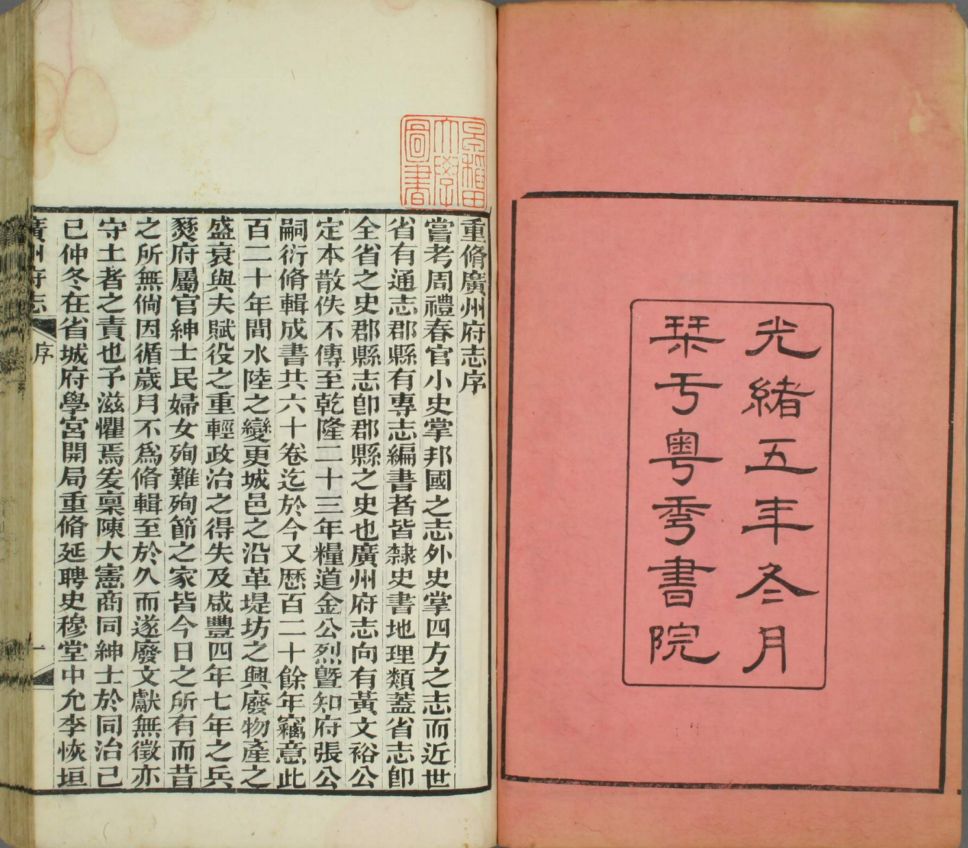 光緒五年冬月
栞于粵秀書院
早稲田
大學
圖書
重脩廣州府志序
嘗考周禮春官小史掌邦國之志外史掌四方之志而近世
省有通志郡縣有專志編書者皆隸史書地理類蓋省志卽
全省之史郡縣志卽郡縣之史也廣州府志向有黃文裕公
定本散佚不傳至乾隆二十三年糧道金公烈曁知府張公
嗣衍脩輯成書共六十卷迄於今又歷百二十餘年竊意此
百二十年間水陸之變更城邑之沿革堤坊之興廢物產之
盛衰與夫賦役之重輕政治之得失及咸豐四年七年之兵
燹府屬官紳士民婦女殉難殉節之家皆今日之所有而昔
之所無倘因循歲月不爲脩輯至於久而遂廢文獻無徵亦
守土者之責也予滋懼焉爰稟陳大憲商同紳士於同治己
巳仲冬在省城府學宮開局重脩延聘史穆堂中允李恢垣
廣州府志
序
一